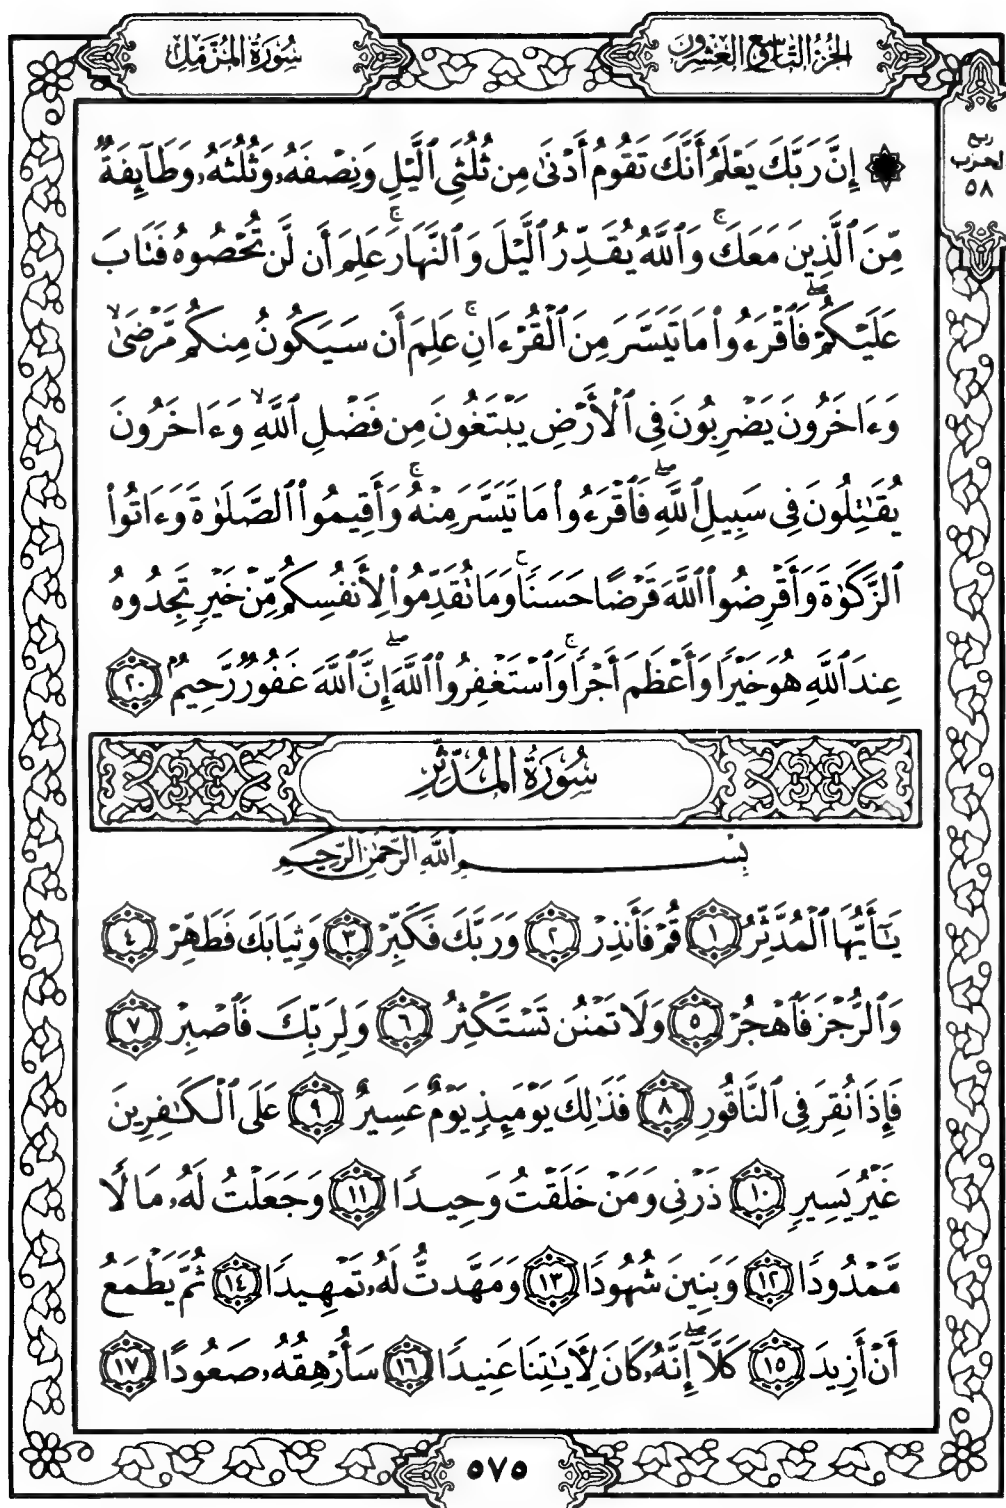 الجزء التاسع والعشرون
سورة المزمل
ربع
الحزب
٥٨
۞ إِنَّ رَبَّكَ يَعْلَمُ أَنَّكَ تَقُومُ أَدْنَىٰ مِن ثُلُثَيِ ٱلَّيْلِ وَنِصْفَهُۥ وَثُلُثَهُۥ وَطَآئِفَةٌ
مِّنَ ٱلَّذِينَ مَعَكَ ۚ وَٱللَّهُ يُقَدِّرُ ٱلَّيْلَ وَٱلنَّهَارَ ۚ عَلِمَ أَن لَّن تُحْصُوهُ فَتَابَ
عَلَيْكُمْ ۖ فَٱقْرَءُوا۟ مَا تَيَسَّرَ مِنَ ٱلْقُرْءَانِ ۚ عَلِمَ أَن سَيَكُونُ مِنكُم مَّرْضَىٰ ۙ
وَءَاخَرُونَ يَضْرِبُونَ فِى ٱلْأَرْضِ يَبْتَغُونَ مِن فَضْلِ ٱللَّهِ ۙ وَءَاخَرُونَ
يُقَٰتِلُونَ فِى سَبِيلِ ٱللَّهِ ۖ فَٱقْرَءُوا۟ مَا تَيَسَّرَ مِنْهُ ۚ وَأَقِيمُوا۟ ٱلصَّلَوٰةَ وَءَاتُوا۟
ٱلزَّكَوٰةَ وَأَقْرِضُوا۟ ٱللَّهَ قَرْضًا حَسَنًا ۚ وَمَا تُقَدِّمُوا۟ لِأَنفُسِكُم مِّنْ خَيْرٍ تَجِدُوهُ
عِندَ ٱللَّهِ هُوَ خَيْرًا وَأَعْظَمَ أَجْرًا ۚ وَٱسْتَغْفِرُوا۟ ٱللَّهَ ۖ إِنَّ ٱللَّهَ غَفُورٌ رَّحِيمٌۢ ٢٠
سُورَةُ المُدَّثِّرِ
بِسْمِ ٱللَّهِ ٱلرَّحْمَٰنِ ٱلرَّحِيمِ
يَٰٓأَيُّهَا ٱلْمُدَّثِّرُ ١ قُمْ فَأَنذِرْ ٢ وَرَبَّكَ فَكَبِّرْ ٣ وَثِيَابَكَ فَطَهِّرْ ٤
وَٱلرُّجْزَ فَٱهْجُرْ ٥ وَلَا تَمْنُن تَسْتَكْثِرُ ٦ وَلِرَبِّكَ فَٱصْبِرْ ٧
فَإِذَا نُقِرَ فِى ٱلنَّاقُورِ ٨ فَذَٰلِكَ يَوْمَئِذٍ يَوْمٌ عَسِيرٌ ٩ عَلَى ٱلْكَٰفِرِينَ
غَيْرُ يَسِيرٍ ١٠ ذَرْنِى وَمَنْ خَلَقْتُ وَحِيدًا ١١ وَجَعَلْتُ لَهُۥ مَالًا
مَّمْدُودًا ١٢ وَبَنِينَ شُهُودًا ١٣ وَمَهَّدتُّ لَهُۥ تَمْهِيدًا ١٤ ثُمَّ يَطْمَعُ
أَنْ أَزِيدَ ١٥ كَلَّآ ۖ إِنَّهُۥ كَانَ لِءَايَٰتِنَا عَنِيدًا ١٦ سَأُرْهِقُهُۥ صَعُودًا ١٧
٥٧٥